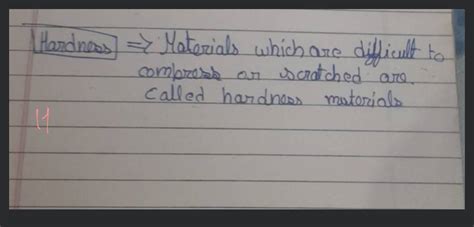 Hardness ⇒ Materials which are difficult to
compress or scratched are.
called hardness materials